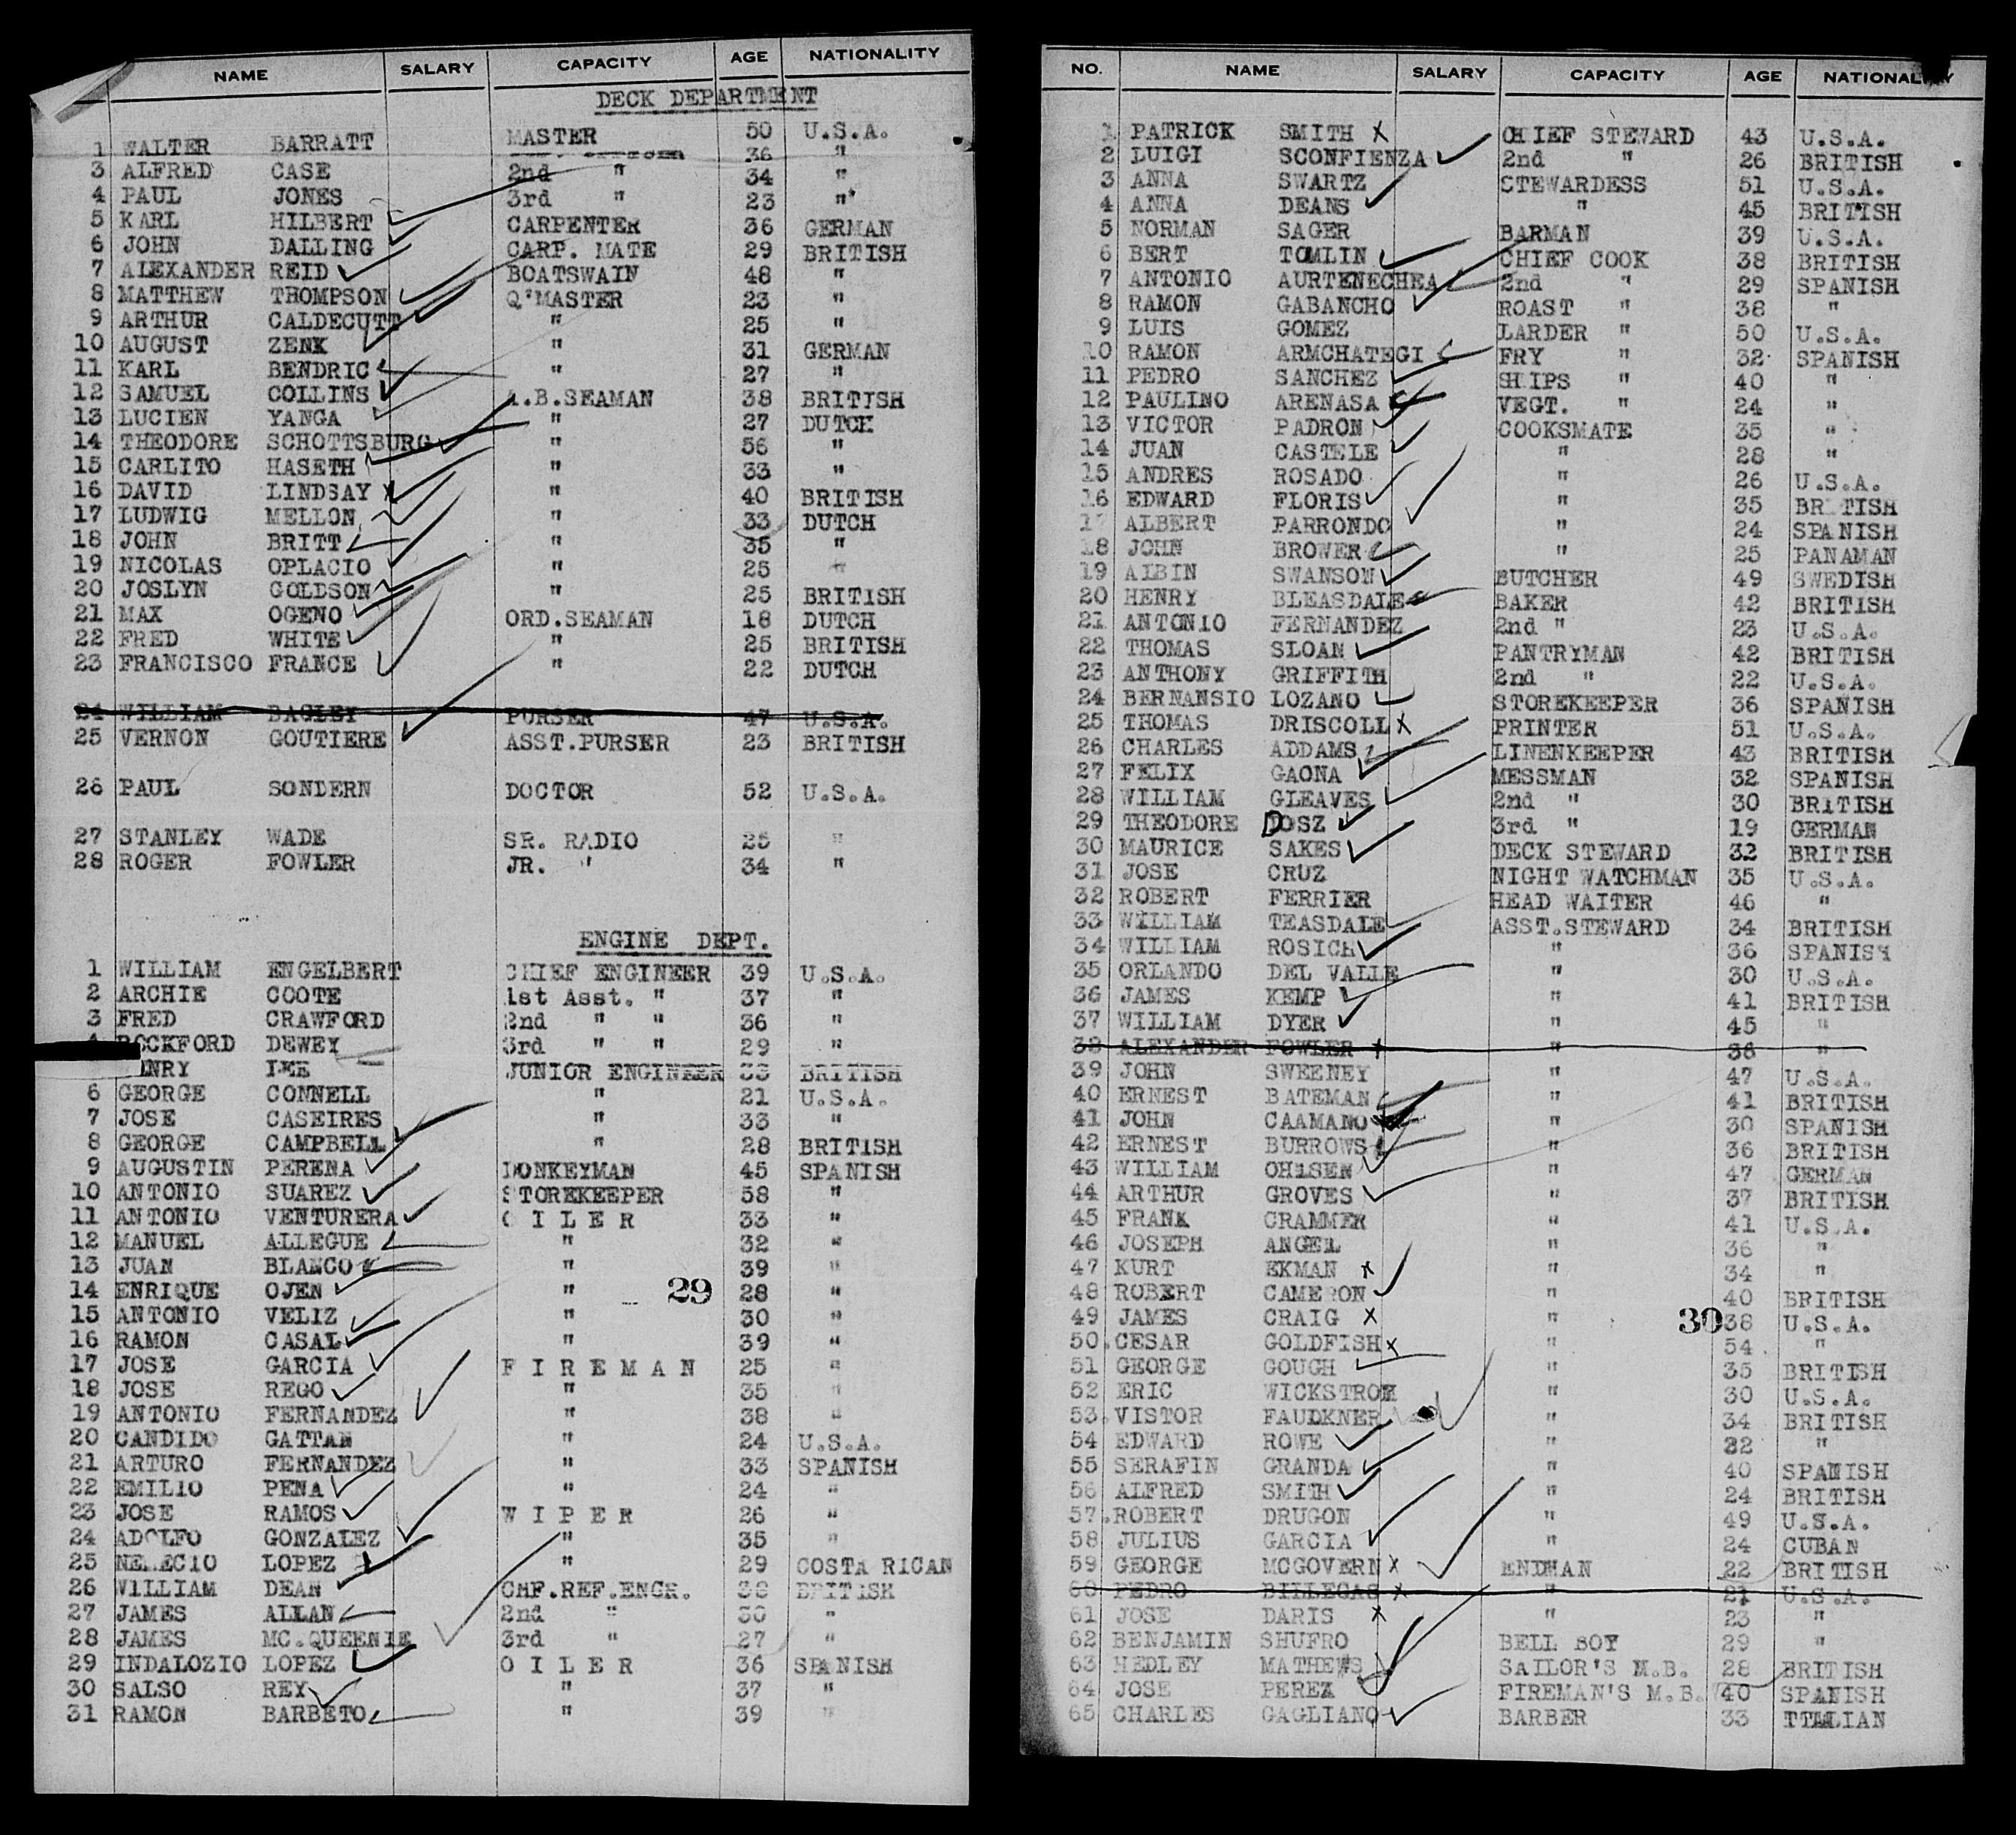 NAME SALARY CAPACITY AGE NATIONALITY
DECK DEPARTMENT
1 WALTER BARRATT MASTER 50 U.S.A.
36 "
3 ALFRED CASE 2nd " 34 "
4 PAUL JONES 3rd " 23 "
5 KARL HILBERT CARPENTER 36 GERMAN
6 JOHN DALLING CARP. MATE 29 BRITISH
7 ALEXANDER REID BOATSWAIN 48 "
8 MATTHEW THOMPSON Q'MASTER 23 "
9 ARTHUR CALDECUTT " 25 "
10 AUGUST ZENK " 31 GERMAN
11 KARL BENDRIC " 27 "
12 SAMUEL COLLINS A.B.SEAMAN 38 BRITISH
13 LUCIEN YANGA " 27 DUTCH
14 THEODORE SCHOTTSBURG " 56 "
15 CARLITO HASETH " 33 "
16 DAVID LINDSAY " 40 BRITISH
17 LUDWIG MELLON " 33 DUTCH
18 JOHN BRITT " 35 "
19 NICOLAS OPLACIO " 25 "
20 JOSLYN GOLDSON " 25 BRITISH
21 MAX OGENO ORD.SEAMAN 18 DUTCH
22 FRED WHITE " 25 BRITISH
23 FRANCISCO FRANCE " 22 DUTCH
24 WILLIAM BAGLEY PURSER 47 U.S.A.
25 VERNON GOUTIERE ASST.PURSER 23 BRITISH
26 PAUL SONDERN DOCTOR 52 U.S.A.
27 STANLEY WADE SR. RADIO 25 "
28 ROGER FOWLER JR. " 34 "
ENGINE DEPT.
1 WILLIAM ENGELBERT CHIEF ENGINEER 39 U.S.A.
2 ARCHIE COOTE 1st Asst. " 37 "
3 FRED CRAWFORD 2nd " " 36 "
4 ROCKFORD DEWEY 3rd " " 29 "
LEE JUNIOR ENGINEER 33 BRITISH
6 GEORGE CONNELL " 21 U.S.A.
7 JOSE CASEIRES " 33 "
8 GEORGE CAMPBELL " 28 BRITISH
9 AUGUSTIN PERENA DONKEYMAN 45 SPANISH
10 ANTONIO SUAREZ STOREKEEPER 58 "
11 ANTONIO VENTURERA O I L E R 33 "
12 MANUEL ALLEGUE " 32 "
13 JUAN BLANCO " 39 "
14 ENRIQUE OJEN " 29 28 "
15 ANTONIO VELIZ " 30 "
16 RAMON CASAL " 39 "
17 JOSE GARCIA F I R E M A N 25 "
18 JOSE REGO " 35 "
19 ANTONIO FERNANDEZ " 38 "
20 CANDIDO GATTAN " 24 U.S.A.
21 ARTURO FERNANDEZ " 33 SPANISH
22 EMILIO PENA " 24 "
23 JOSE RAMOS W I P E R 26 "
24 ADOLFO GONZALEZ " 35 "
25 LOPEZ " 29 COSTA RICAN
26 WILLIAM DEAN CHF.REF.ENGR. 38 BRITISH
27 JAMES ALLAN 2nd " 30 "
28 JAMES MC.QUEENIE 3rd " 27 "
29 INDALOZIO LOPEZ O I L E R 36 SPANISH
30 SALSO REY " 37 "
31 RAMON BARBETO " 39 "
NO. NAME SALARY CAPACITY AGE NATIONALITY
1 PATRICK SMITH X CHIEF STEWARD 43 U.S.A.
2 LUIGI SCONFIENZA 2nd " 26 BRITISH
3 ANNA SWARTZ STEWARDESS 51 U.S.A.
4 ANNA DEANS " 45 BRITISH
5 NORMAN SAGER BARMAN 39 U.S.A.
6 BERT TOMLIN CHIEF COOK 38 BRITISH
7 ANTONIO AURTENECHEA 2nd " 29 SPANISH
8 RAMON GABANCHO ROAST " 38 "
9 LUIS GOMEZ LARDER " 50 U.S.A.
10 RAMON ARMCHATEGI FRY " 32 SPANISH
11 PEDRO SANCHEZ SHIPS " 40 "
12 PAULINO ARENASA VEGT. " 24 "
13 VICTOR PADRON COOKSMATE 35 "
14 JUAN CASTELE " 28 "
15 ANDRES ROSADO " 26 U.S.A.
16 EDWARD FLORIS " 35 BRITISH
17 ALBERT PARRONDO " 24 SPANISH
18 JOHN BROWER " 25 PANAMAN
19 ALBIN SWANSON BUTCHER 49 SWEDISH
20 HENRY BLEASDALE BAKER 42 BRITISH
21 ANTONIO FERNANDEZ 2nd " 23 U.S.A.
22 THOMAS SLOAN PANTRYMAN 42 BRITISH
23 ANTHONY GRIFFITH 2nd " 22 U.S.A.
24 BERNANSIO LOZANO STOREKEEPER 36 SPANISH
25 THOMAS DRISCOLL X PRINTER 51 U.S.A.
26 CHARLES ADDAMS LINENKEEPER 43 BRITISH
27 FELIX GAONA MESSMAN 32 SPANISH
28 WILLIAM GLEAVES 2nd " 30 BRITISH
29 THEODORE DOSZ 3rd " 19 GERMAN
30 MAURICE SAKES DECK STEWARD 32 BRITISH
31 JOSE CRUZ NIGHT WATCHMAN 35 U.S.A.
32 ROBERT FERRIER HEAD WAITER 46 "
33 WILLIAM TEASDALE ASST.STEWARD 34 BRITISH
34 WILLIAM ROSICH " 36 SPANISH
35 ORLANDO DEL VALLE " 30 U.S.A.
36 JAMES KEMP " 41 BRITISH
37 WILLIAM DYER " 45 "
38 ALEXANDER FOWLER X " 36 "
39 JOHN SWEENEY " 47 U.S.A.
40 ERNEST BATEMAN " 41 BRITISH
41 JOHN CAAMANO " 30 SPANISH
42 ERNEST BURROWS " 36 BRITISH
43 WILLIAM OHLSEN " 47 GERMAN
44 ARTHUR GROVES " 37 BRITISH
45 FRANK CRAMMER " 41 U.S.A.
46 JOSEPH ANGEL " 36 "
47 KURT EKMAN X " 34 "
48 ROBERT CAMERON " 40 BRITISH
49 JAMES CRAIG X " 30 38 U.S.A.
50. CESAR GOLDFISH X " 54 "
51 GEORGE GOUGH " 35 BRITISH
52 ERIC WICKSTROM " 30 U.S.A.
53. VISTOR FAUDKNER " 34 BRITISH
54 EDWARD ROWE " 32 "
55 SERAFIN GRANDA " 40 SPANISH
56 ALFRED SMITH " 24 BRITISH
57. ROBERT DRUGON " 49 U.S.A.
58 JULIUS GARCIA " 24 CUBAN
59 GEORGE MCGOVERN X ENDMAN 22 BRITISH
60 PEDRO BILLEGAS X " 21 U.S.A.
61 JOSE DARIS X " 23 "
62 BENJAMIN SHUFRO BELL BOY 29 "
63 HEDLEY MATHEWS SAILOR'S M.B. 28 BRITISH
64 JOSE PEREZ FIREMAN'S M.B. 40 SPANISH
65 CHARLES GAGLIANO BARBER 33 ITALIAN